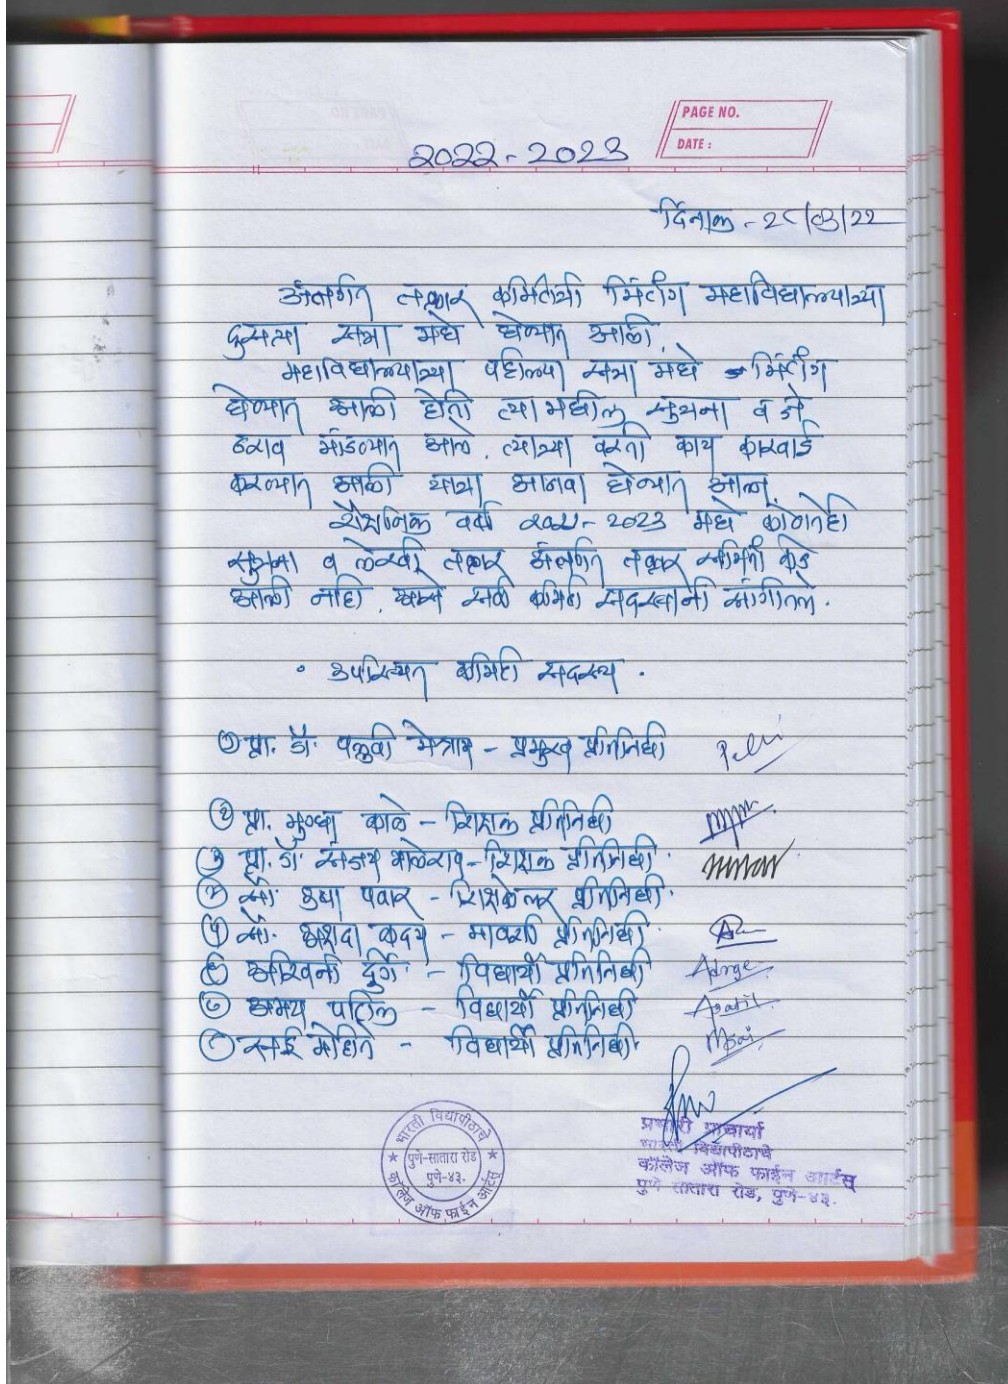 PAGE NO.
DATE :
2022-2023
दिनांक - 2८/03/22
अंतर्गत तक्रार कमिटीची मिटींग महाविद्यालयाच्या
दुसऱ्या सत्रा मधे घेण्यात आली.
महाविद्यालयाच्या पहिल्या सत्रा मधे मिटींग
घेण्यात आली होती त्या मधील सुचना व जे
ठराव मांडण्यात आले. त्याच्या वरती काय कारवाई
करण्यात आली याचा आढावा घेण्यात आला.
शैक्षणिक वर्ष 2022-2023 मधे कोणतेही
सुचना व लेखी तक्रार अंतर्गत तक्रार समिती कडे
आली नाही. असे सर्व कमिटी सदस्यांनी सांगीतले.
• उपस्थित कमिटी सदस्य.
① प्रा. डॉ. पल्लवी मेत्राम - प्रमुख प्रतिनिधी
② प्रा. मुग्धा काळे - शिक्षक प्रतिनिधी
③ प्रा. डॉ. संजय भालेराव - शिक्षक प्रतिनिधी.
④ सौ. उषा पवार - शिक्षकेत्तर प्रतिनिधी.
⑤ सौ. कदम - प्रतिनिधी.
⑥ अश्विनी दुर्गे - विद्यार्थी प्रतिनिधी
⑦ अभय पाटील - विद्यार्थी प्रतिनिधी
⑧ सई मोहिते - विद्यार्थी प्रतिनिधी.
भारती विद्यापीठाचे
पुणे-सातारा रोड
पुणे-४३.
कॉलेज ऑफ फाईन आर्टस्
प्रभारी प्राचार्या
भारती विद्यापीठाचे
कॉलेज ऑफ फाईन आर्टस्
पुणे सातारा रोड, पुणे-४३.